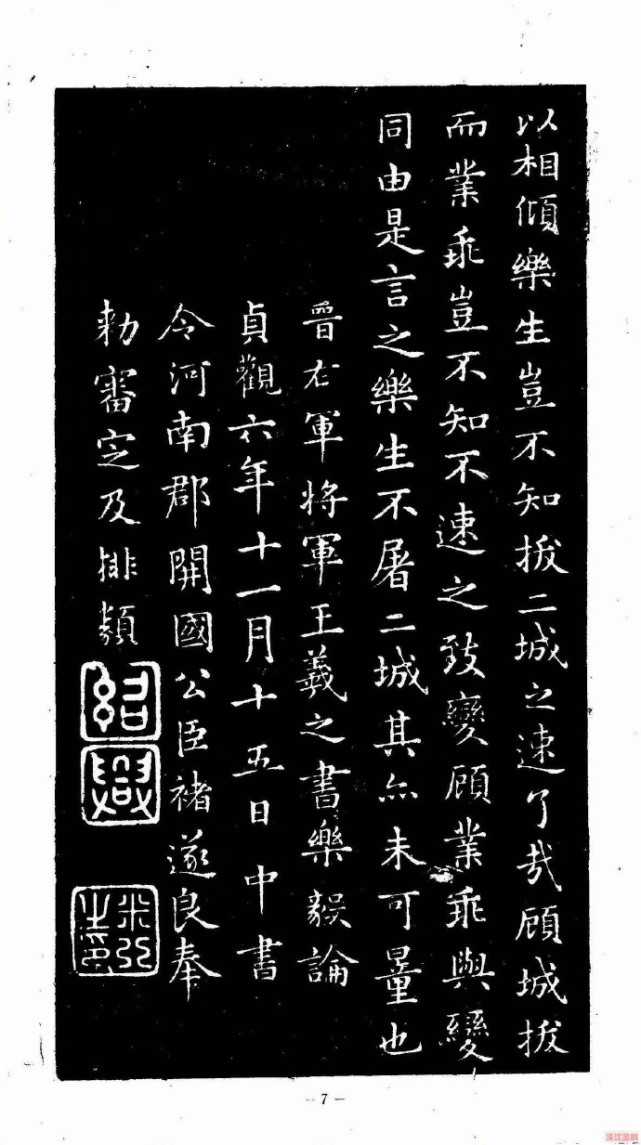 以相傾樂生豈不知拔二城之速了哉顧城拔
而業乖豈不知不速之致變顧業乖與變
同由是言之樂生不屠二城其亦未可量也
晉右軍將軍王羲之書樂毅論
貞觀六年十一月十五日中書
令河南郡開國公臣褚遂良奉
勅審定及排類
紹興
米芾之印
- 7 -